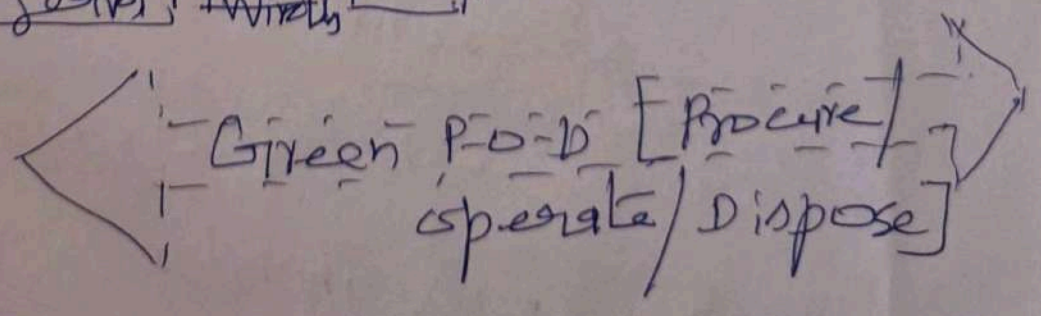 Green P-O-D [Procure/
operate/Dispose]